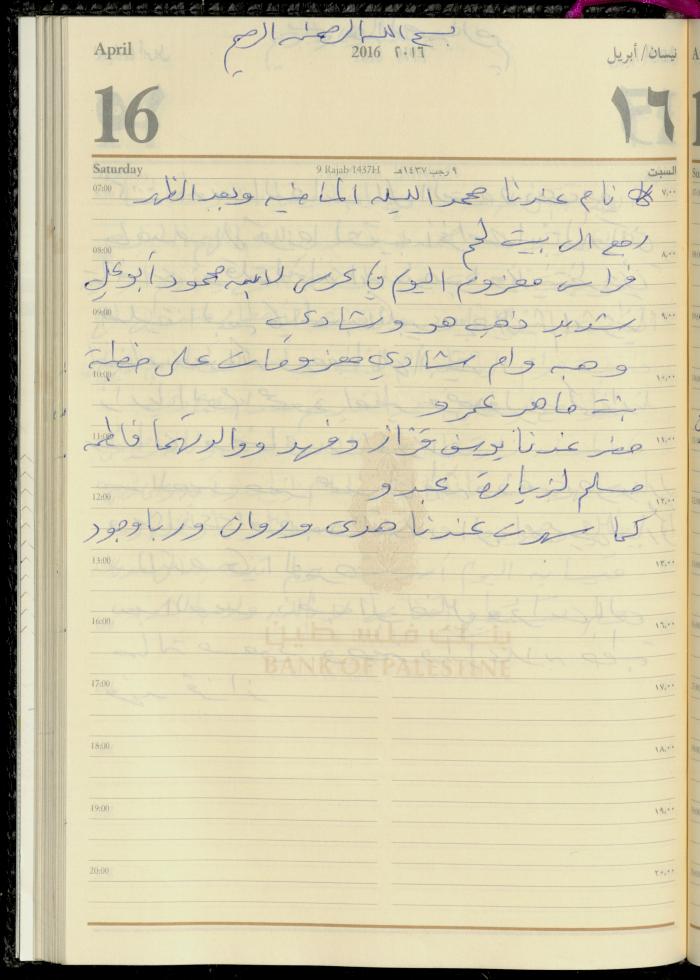 بسم الله الرحمن الرحيم
April 2016 ٢٠١٦ نيسان / أبريل
16 ١٦
Saturday 9 Rajab 1437H ٩ رجب ١٤٣٧هـ السبت
07:00 نام عندنا محمد الليله الماضيه وبعد الظهر ٧,٠٠
رجع الى بيت لحم
08:00 ٨,٠٠
فراس معزوم اليوم في عرس لابنه محمود أبو علي
09:00 شديد ذهب هو وشادي ٩,٠٠
وهبه وام شادي معزومات على خطبة
10:00 ١٠,٠٠
بنت ماهر عمرو
11:00 حضر عندنا يوسف قزاز وفهد ووالدتهما فاطمه ١١,٠٠
مسلم لزيارة عبدو
12:00 ١٢,٠٠
كما سهرت عندنا هدى وروان وربا وجود
13:00 ١٣,٠٠
16:00 ١٦,٠٠
بنك فلسطين
BANK OF PALESTINE
17:00 ١٧,٠٠
18:00 ١٨,٠٠
19:00 ١٩,٠٠
20:00 ٢٠,٠٠